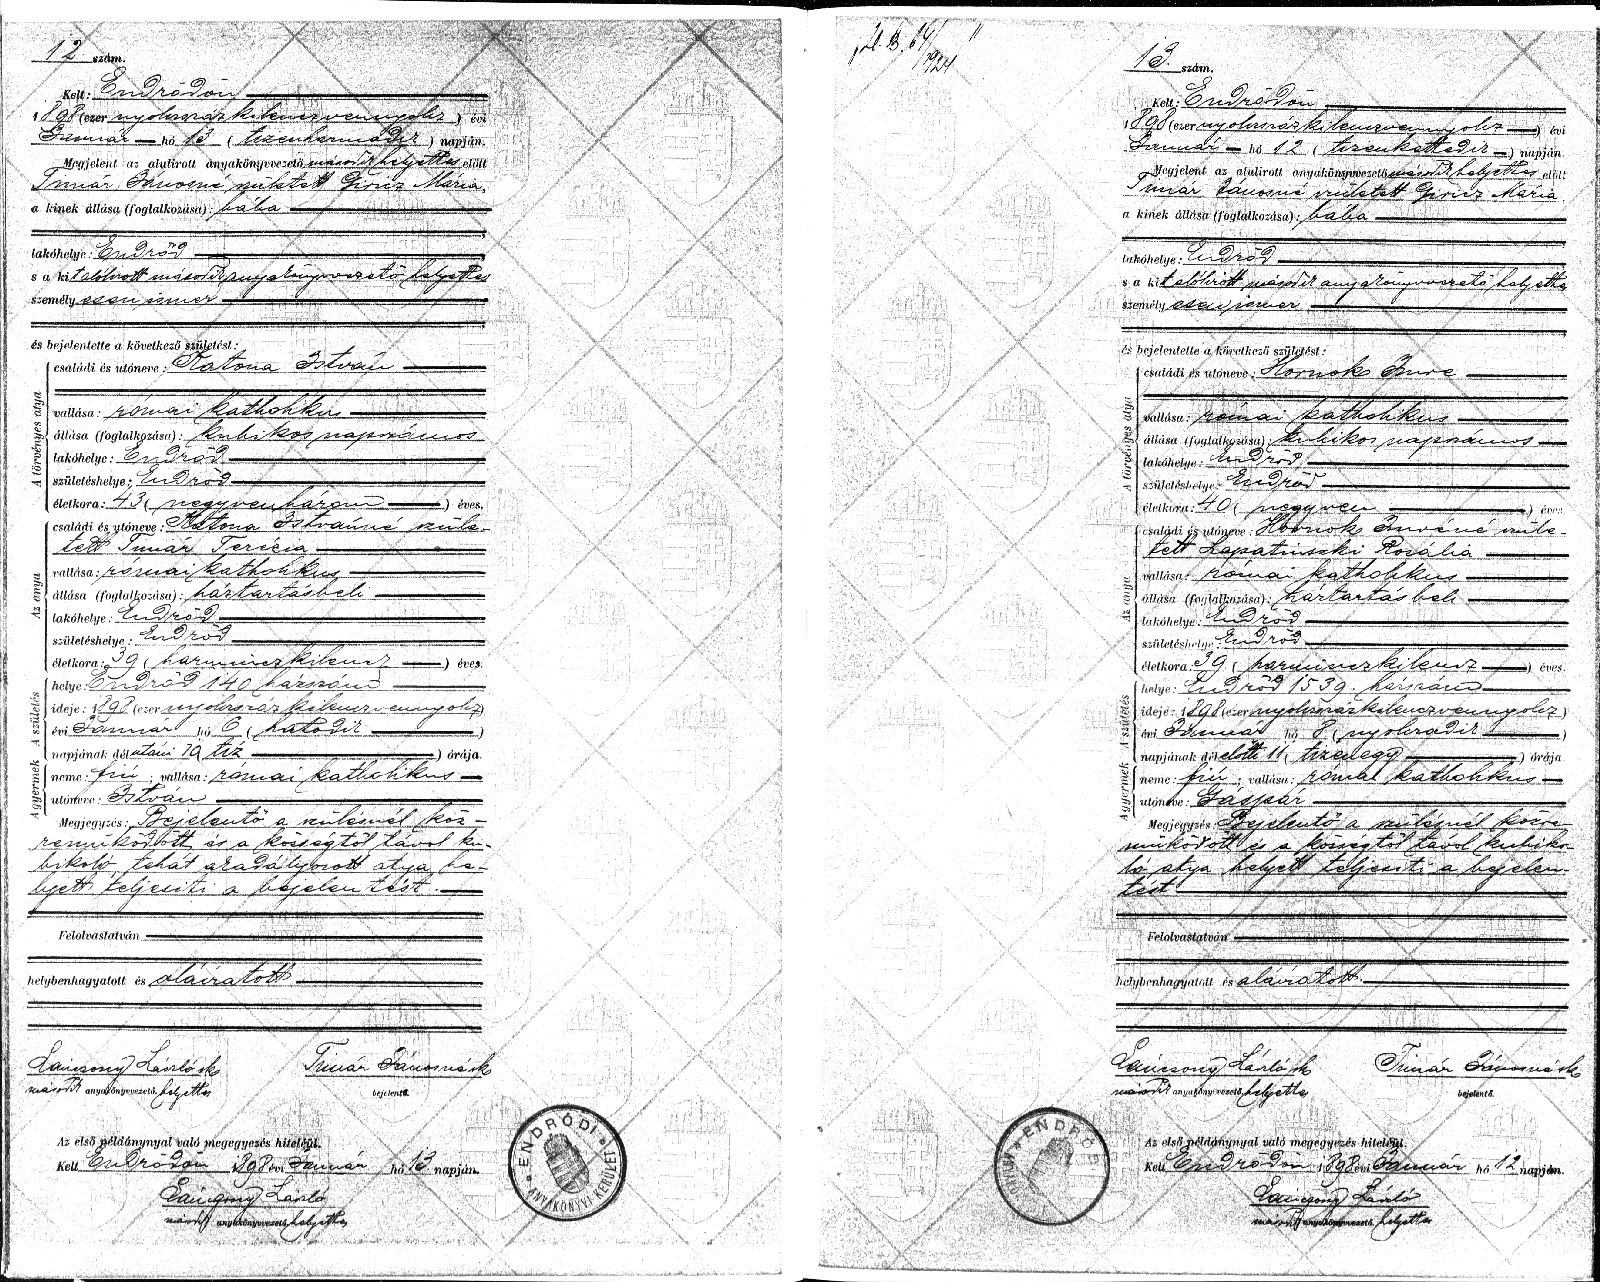 12 szám.
Kelt: Endrődön
1898 (ezer nyolczszázkilenczvennyolcz) évi
Január hó 13 (tizenharmadik) napján.
Megjelent az alulirott anyakönyvvezető második helyettes előtt
Timár Jánosné született Giricz Mária,
a kinek állása (foglalkozása): bába
lakóhelye: Endrőd
s a kit alólirott második anyakönyvvezető helyettes
személyesen ismer
és bejelentette a következő születést:
A törvényes atya
családi és utóneve: Katona István
vallása: római katholikus
állása (foglalkozása): kubikos napszámos
lakóhelye: Endrőd
születéshelye: Endrőd
életkora: 43 (negyvenhárom) éves.
Az anya
családi és utóneve: Katona Istvánné szüle-
tett Timár Terézia
vallása: római katholikus
állása (foglalkozása): háztartásbeli
lakóhelye: Endrőd
születéshelye: Endrőd
életkora: 39 (harminczkilencz) éves.
A születés
helye: Endrőd 140 házszám
ideje: 1898 (ezer nyolczszázkilenczvennyolcz)
évi Január hó 6 (hatodik)
napjának délutáni 10 tiz órája.
A gyermek
neme: fiú; vallása: római katholikus
utóneve: István
Megjegyzés: Bejelentő a szülésnél köz-
remüködött és a községtől távol ku-
bikoló, tehát akadályozott atya he-
lyett teljesiti a bejelentést.
Felolvastatván
helybenhagyatott és aláiratott
Lánczony László sk Timár Jánosné sk
második anyakönyvvezető helyettes bejelentő.
Az első példánynyal való megegyezés hiteléül.
Kelt Endrődön 1898 évi Január hó 13 napján.
Lánczony László
második anyakönyvvezető helyettes
ENDRŐDI ANYAKÖNYVI KERÜLET
1924
13. szám.
Kelt: Endrődön
1898 (ezer nyolczszázkilenczvennyolcz) évi
Január hó 12 (tizenkettedik) napján.
Megjelent az alulirott anyakönyvvezető második helyettes előtt
Timár Jánosné született Giricz Mária
a kinek állása (foglalkozása): bába
lakóhelye: Endrőd
s a kit alólirott második anyakönyvvezető helyettes
személyesen ismer
és bejelentette a következő születést:
A törvényes atya
családi és utóneve: Hornok Imre
vallása: római katholikus
állása (foglalkozása): kubikos napszámos
lakóhelye: Endrőd
születéshelye: Endrőd
életkora: 40 (negyven) éves.
Az anya
családi és utóneve: Hornok Imréné szüle-
tett Lapatinszki Rozália
vallása: római katholikus
állása (foglalkozása): háztartásbeli
lakóhelye: Endrőd
születéshelye: Endrőd
életkora: 39 (harminczkilencz) éves.
A születés
helye: Endrőd 1539. házszám
ideje: 1898 (ezer nyolczszázkilenczvennyolcz)
évi Január hó 8 (nyolczadik)
napjának délelőtti 11 (tizenegy) órája
A gyermek
neme: fiú; vallása: római katholikus
utóneve: Gáspár
Megjegyzés: Bejelentő a szülésnél közre-
müködött és a községtől távol kubiko-
ló atya helyett teljesiti a bejelen-
tést
Felolvastatván
helybenhagyatott és aláiratott.
Lánczony László sk Timár Jánosné sk
második anyakönyvvezető helyettes bejelentő.
Az első példánynyal való megegyezés hiteléül.
Kelt Endrődön 1898 évi Január hó 12 napján.
Lánczony László
második anyakönyvvezető helyettes